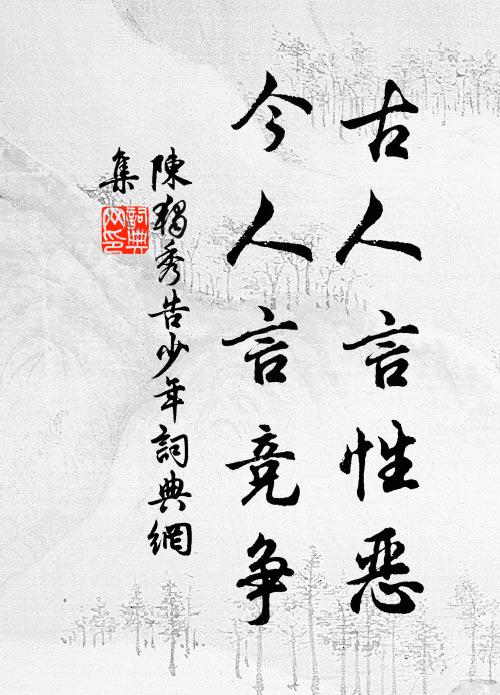 古人言性恶
今人言竞争
陳獨秀告少年詞典網
集
詞典
网印